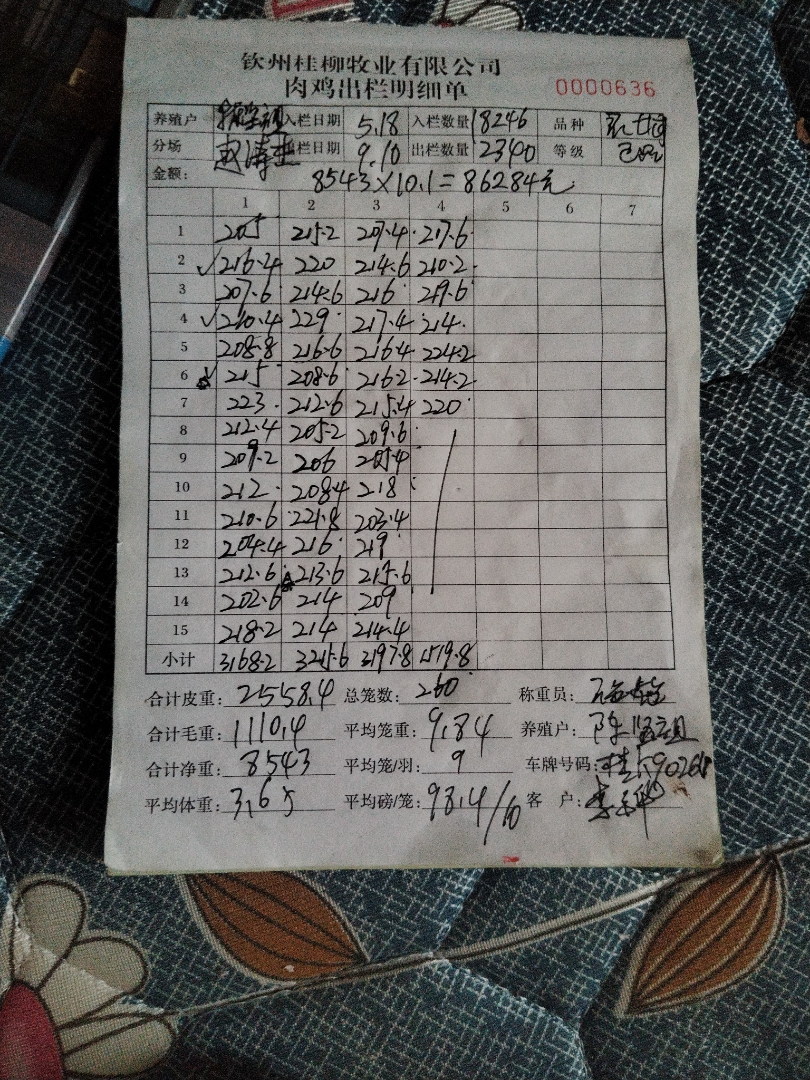 钦州桂柳牧业有限公司
肉鸡出栏明细单 0000636
养殖户 入栏日期 5.18 入栏数量 18246 品种
分场 栏日期 9.10 出栏数量 2340 等级
金额: 8543×10.1=86284元
1 2 3 4 5 6 7
1 205 215.2 207.4 217.6
2 √216.4 220 214.6 210.2
3 207.6 214.6 216 219.6
4 √210.4 229 217.4 214
5 208.8 216.6 216.4 224.2
6 215 208.6 216.2 214.2
7 223 212.6 215.4 220
8 212.4 205.2 209.6
9 209.2 206 205.4
10 212 208.4 218
11 210.6 221.8 203.4
12 204.4 216 219
13 212.6 213.6 215.6
14 202.6 214 209
15 218.2 214 214.4
小计 3168.2 3215.6 3197.8 1519.8
合计皮重: 2558.4 总笼数: 260 称重员:
合计毛重: 1110.4 平均笼重: 9.84 养殖户:
合计净重: 8543 平均笼/羽: 9 车牌号码:
平均体重: 3.65 平均磅/笼: 98.4/10 客 户: